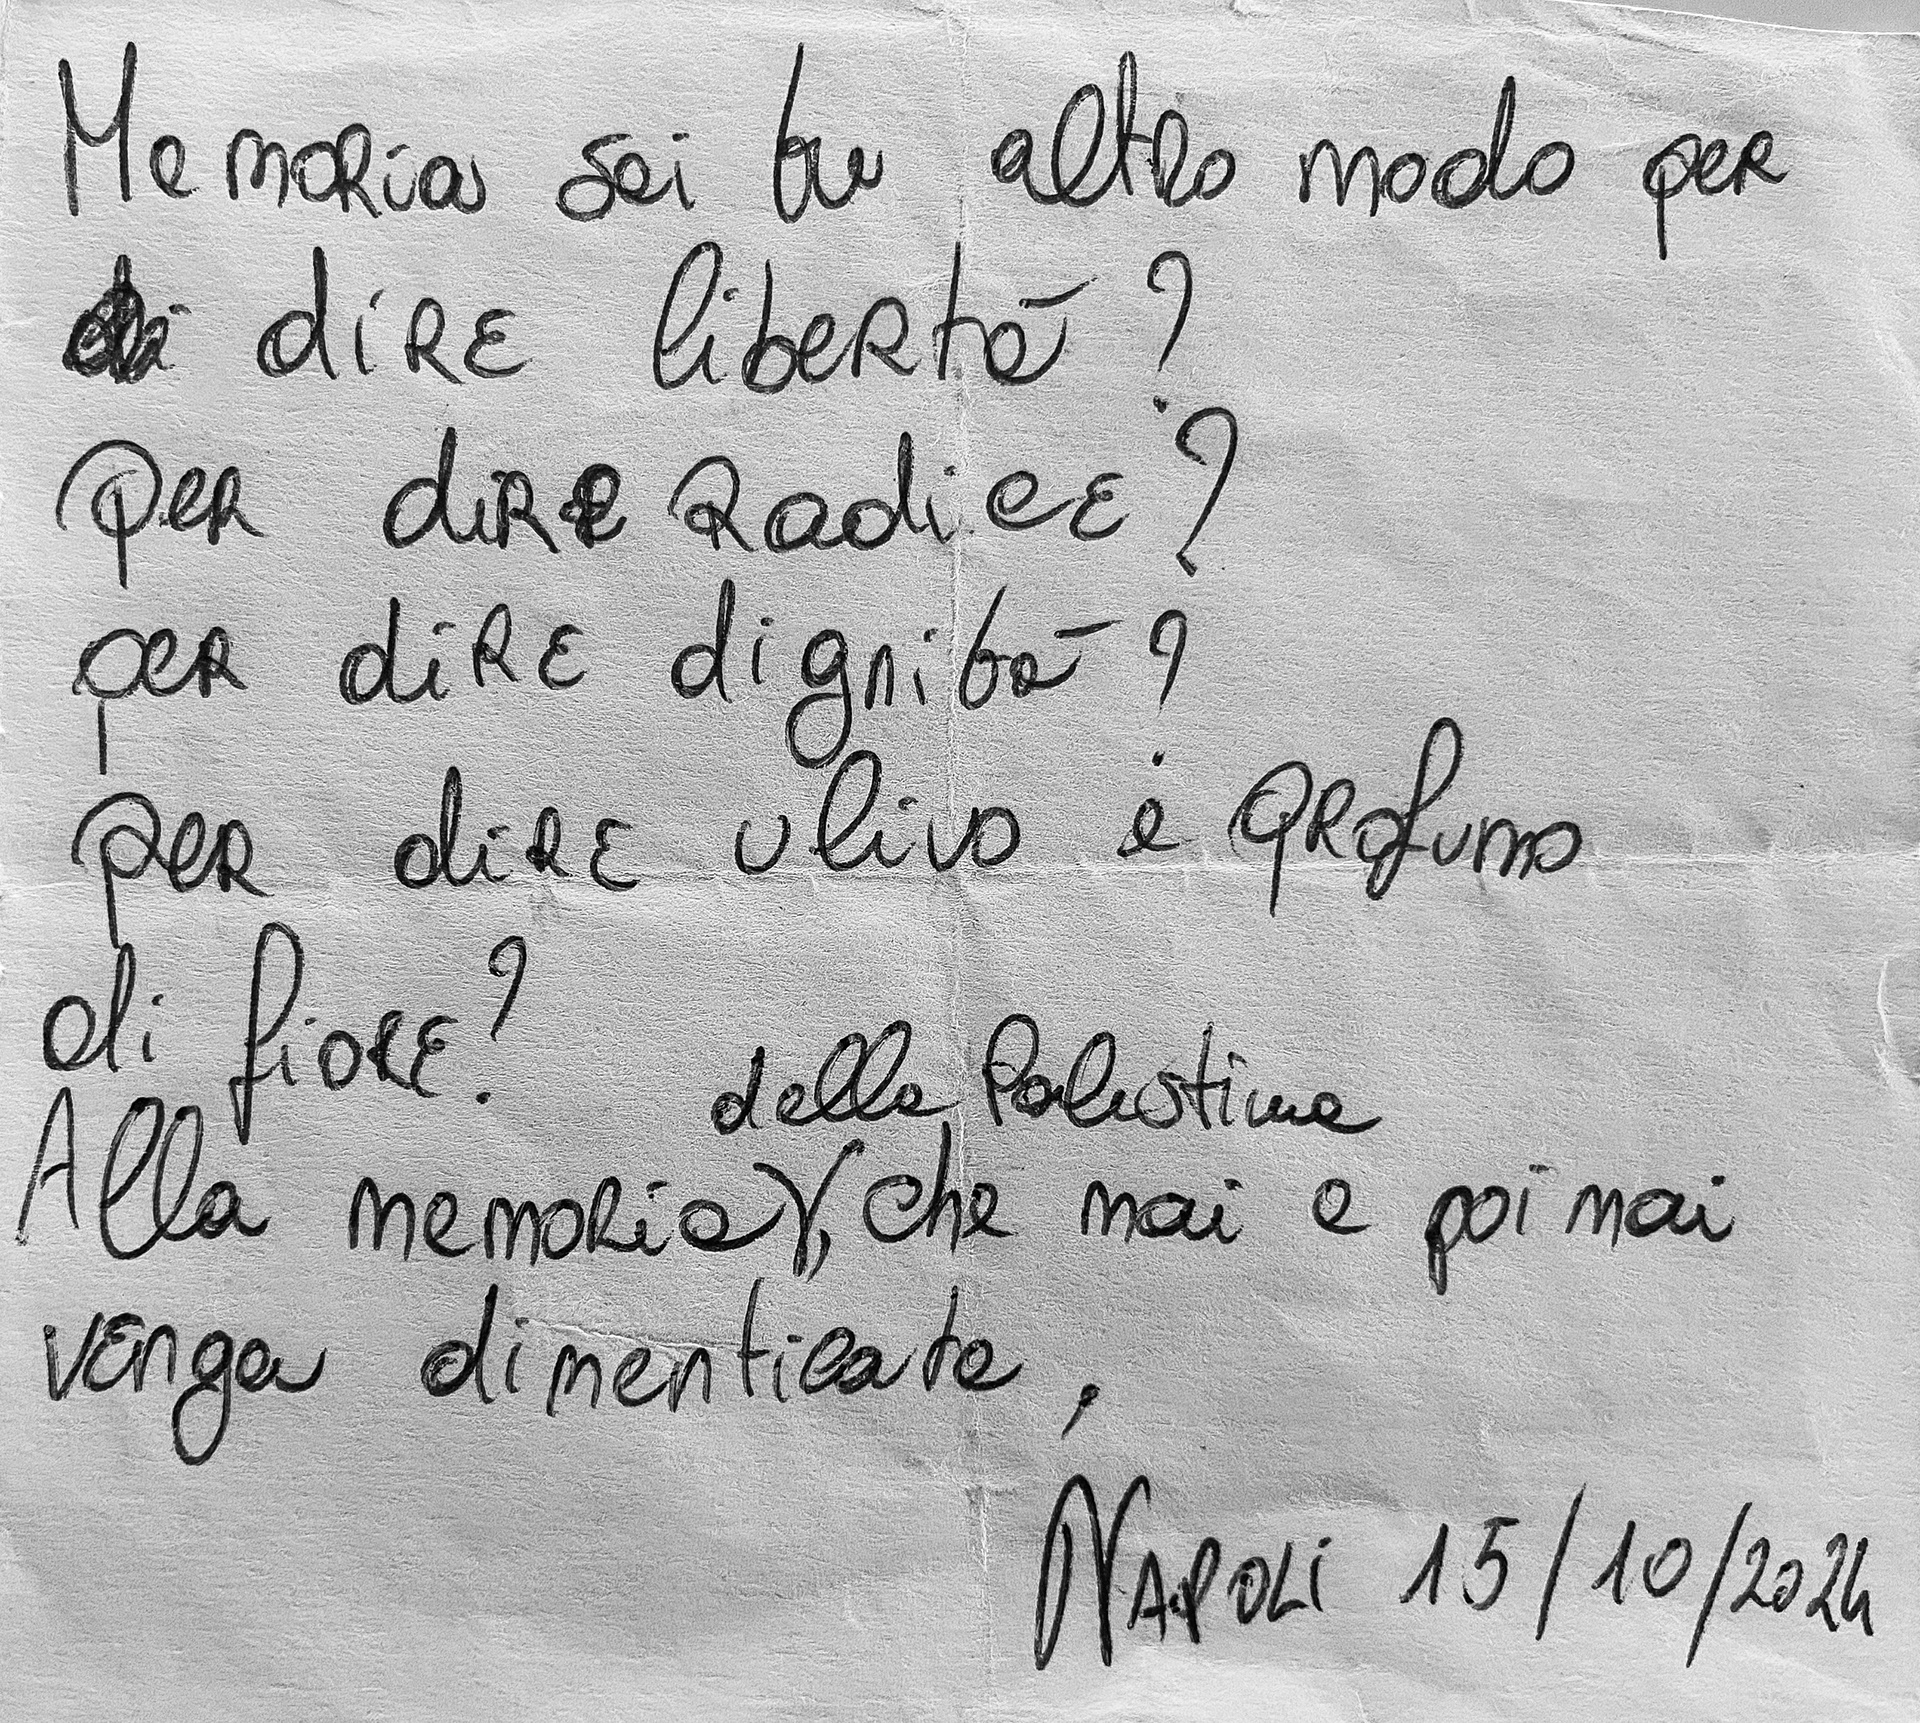 Memoria sei tu altro modo per
dire libertà?
per dire radice?
per dire dignità?
per dire ulivo e profumo
di fiore?
della Palestina
Alla memoria, che mai e poi mai
venga dimenticata,
NAPOLI 15/10/2024